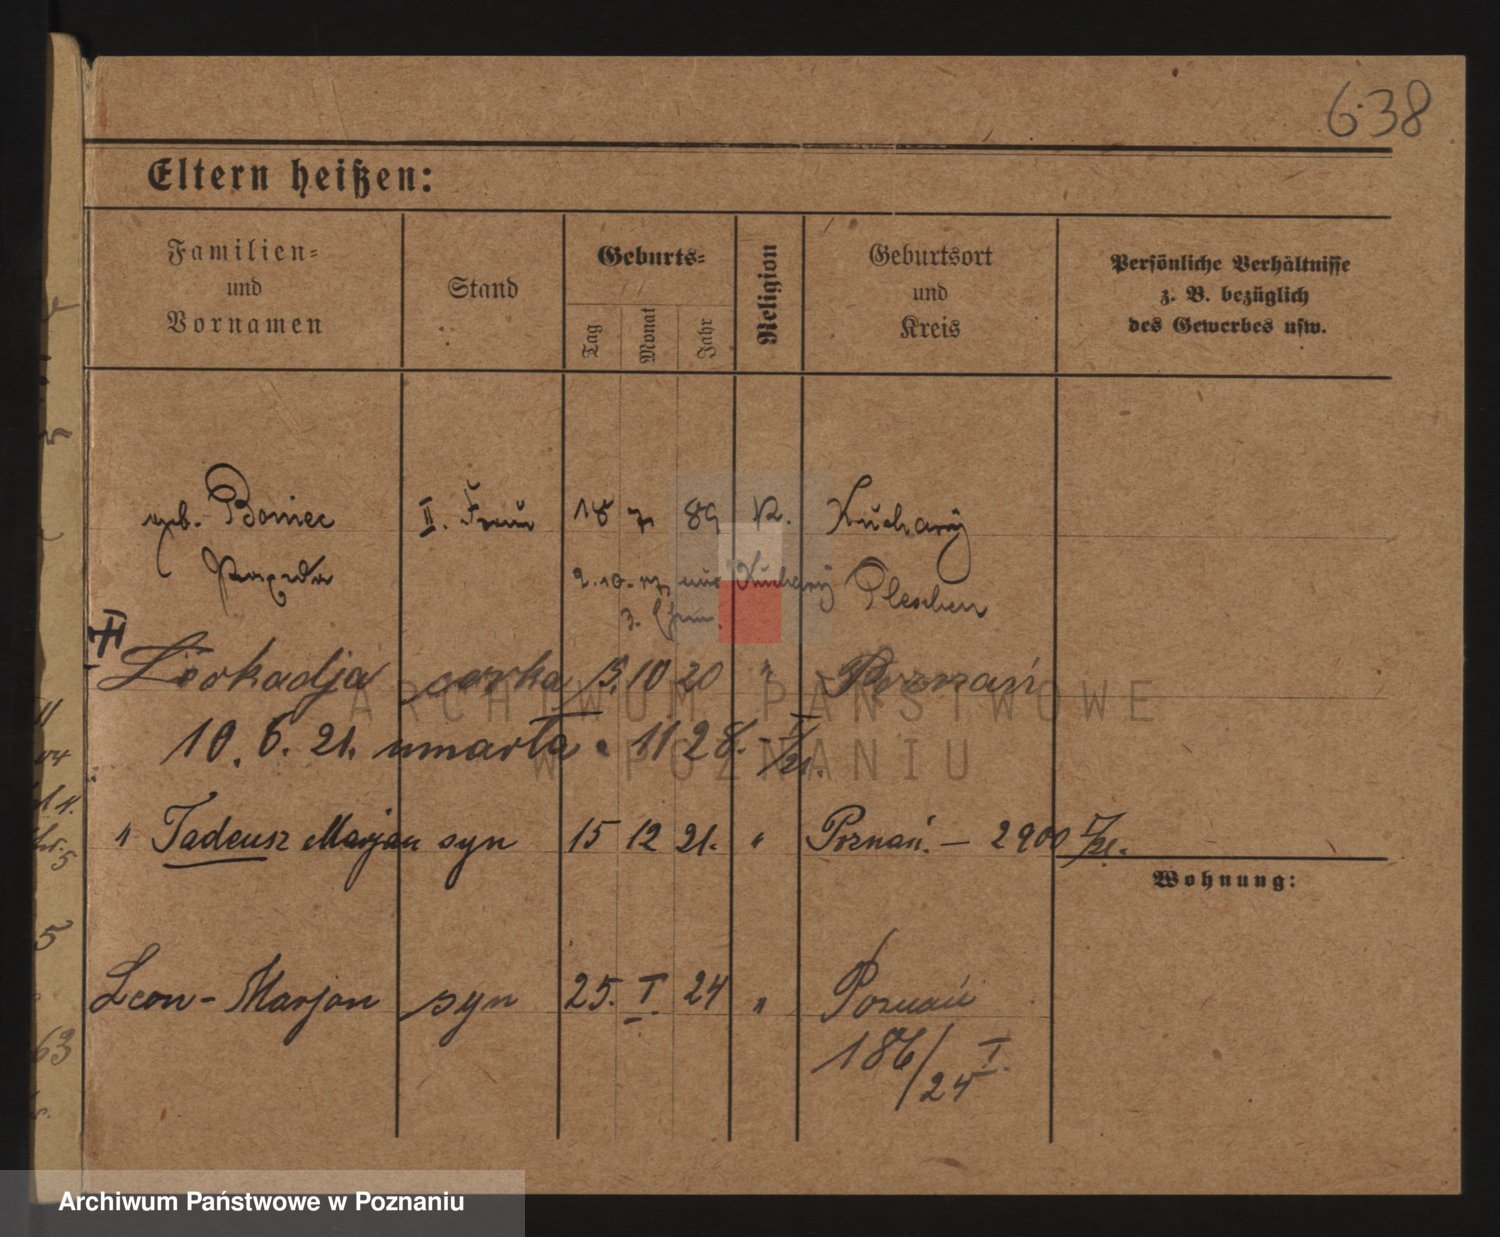 638
Eltern heißen:
Familien-
und
Vornamen
Stand
Geburts-
Tag
Monat
Jahr
Religion
Geburtsort
und
Kreis
Persönliche Verhältnisse
z. B. bezüglich
des Gewerbes usw.
geb. Boniec II. Frau 18 7 89 K. Kuchary
2. 10. 17 aus Kuchary Pleschen
3.
Leokadja corka 3. 10 20 " Poznań
10. 6. 21. umarła 1128.
" Tadeusz Marjan syn 15 12 21. " Poznań. — 2900 V/21.
Wohnung:
Leon - Marjan syn 25. I. 24 " Poznań
186/24 I.
ARCHIWUM PAŃSTWOWE
W POZNANIU
Archiwum Państwowe w Poznaniu